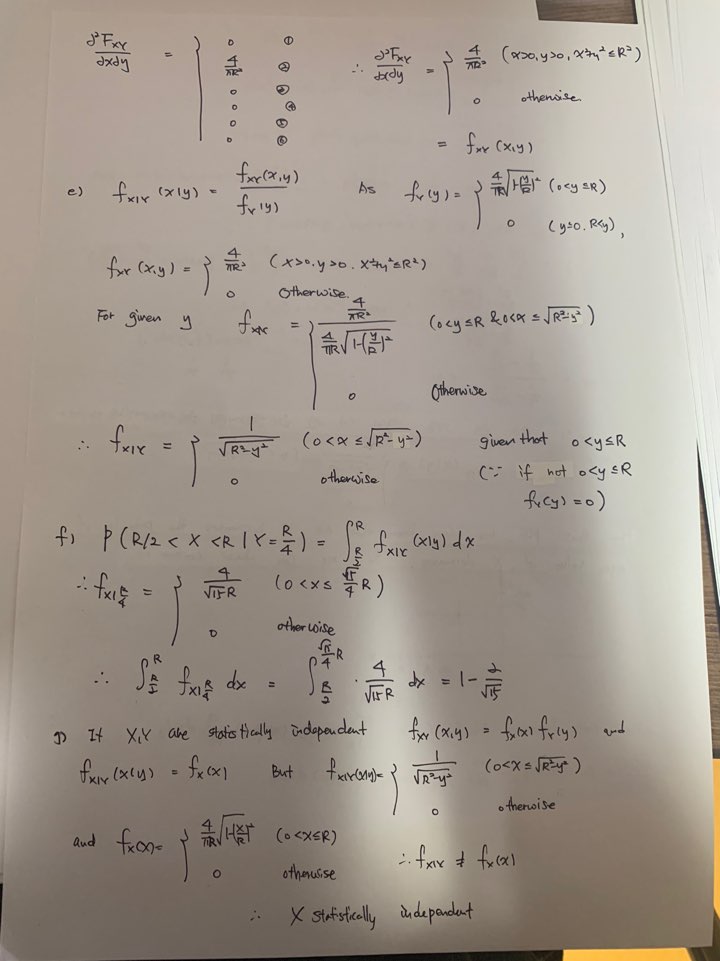 ∂²F_XY/∂x∂y = { 0 ① ∴ ∂²F_XY/∂x∂y = { 4/πR² (x>0, y>0, x²+y² ≤ R²)
4/πR² ② 0 otherwise.
0 ③
0 ④
0 ⑤
0 ⑥ = f_XY (x,y)
e) f_X|Y (x|y) = f_XY(x,y)/f_Y(y) As f_Y(y) = { 4/πR √(1-(y/R)²) (0<y≤R)
0 (y≤0, R<y),
f_XY (x,y) = { 4/πR² (x>0, y>0, x²+y² ≤ R²)
0 Otherwise.
For given y f_X|Y = { (4/πR²)/(4/πR √(1-(y/R)²)) (0<y≤R & 0<x≤√(R²-y²))
0 Otherwise
∴ f_X|Y = { 1/√(R²-y²) (0<x≤√(R²-y²)) given that 0<y≤R
0 otherwise (∵ if not 0<y≤R
f_Y(y)=0)
f) P(R/2 < X < R | Y = R/4) = ∫_{R/2}^{R} f_X|Y (x|y) dx
∴ f_X|R/4 = { 4/√15R (0<x≤ √15/4 R)
0 otherwise
∴ ∫_{R/2}^{R} f_X|R/4 dx = ∫_{R/2}^{√15/4 R} · 4/√15R dx = 1 - 2/√15
g) If X,Y are statistically independent f_XY (x,y) = f_X(x) f_Y(y) and
f_X|Y (x|y) = f_X(x) But f_X|Y(x|y) = { 1/√(R²-y²) (0<x≤√(R²-y²))
0 otherwise
and f_X(x) = { 4/πR √(1-(x/R)²) (0<x≤R)
0 otherwise ∴ f_X|Y ≠ f_X(x)
∴ X statistically independent